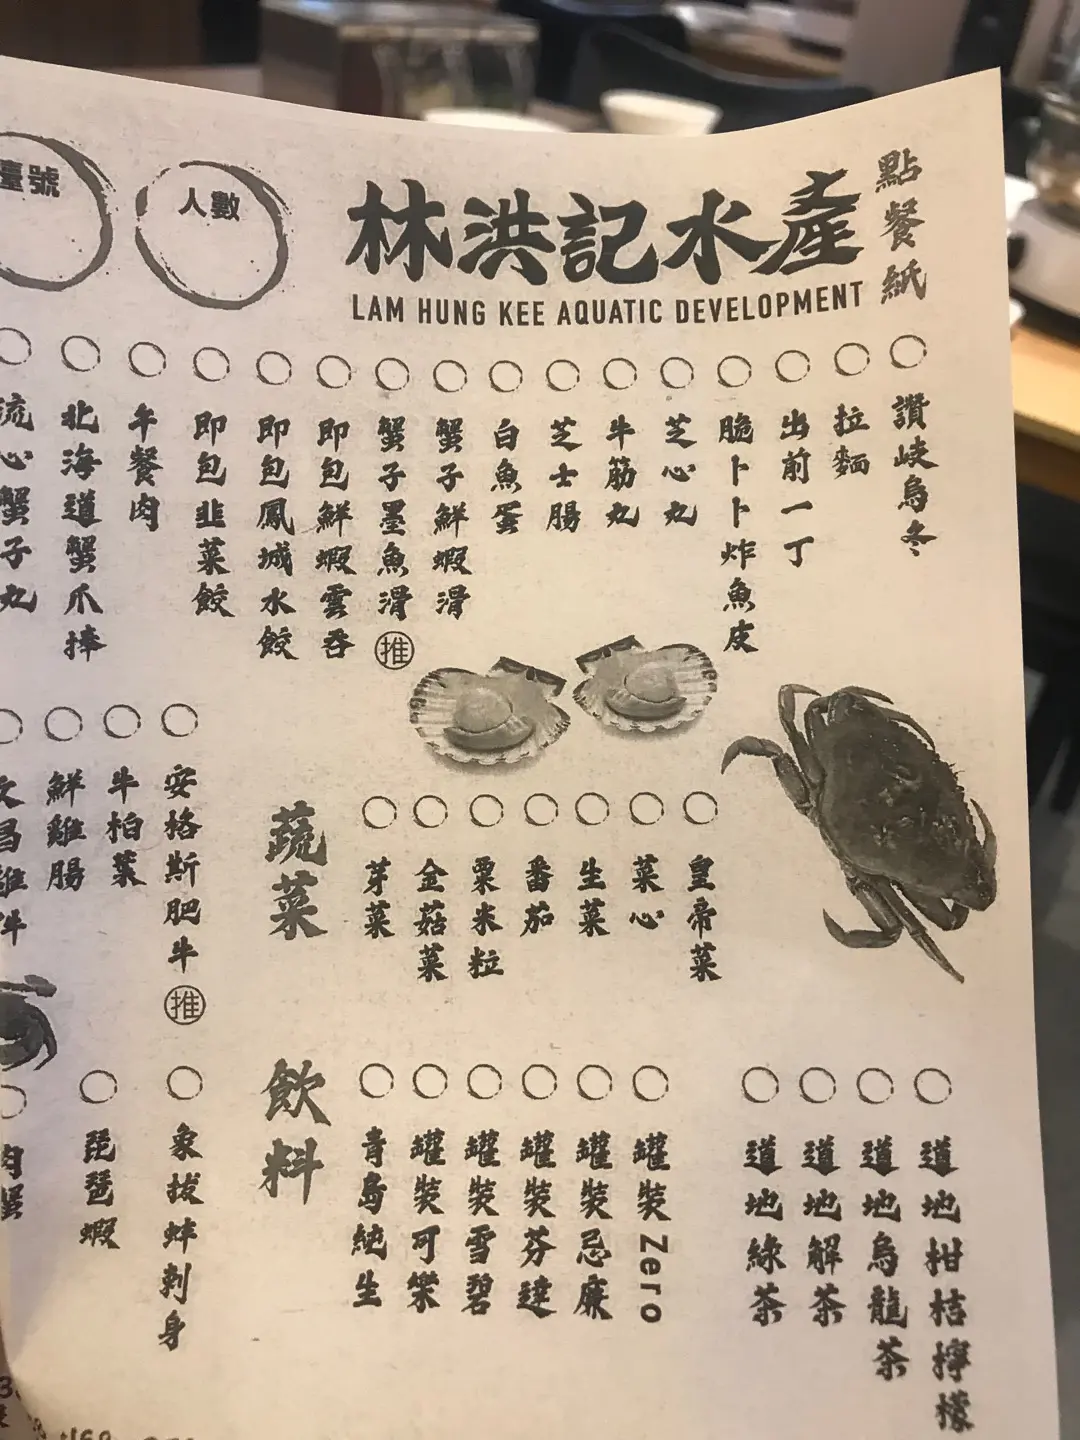 點餐紙
林洪記水產
LAM HUNG KEE AQUATIC DEVELOPMENT
人數
臺號
讚岐烏冬
拉麵
出前一丁
脆卜卜炸魚皮
芝心丸
牛筋丸
芝士腸
白魚蛋
蟹子鮮蝦滑
蟹子墨魚滑 推
即包鮮蝦雲吞
即包鳳城水餃
即包韭菜餃
午餐肉
北海道蟹爪捧
流心蟹子丸
安格斯肥牛 推
牛柏葉
鮮雞腸
文昌雞件
蔬菜
皇帝菜
菜心
生菜
番茄
粟米粒
金菇菜
芽菜
象拔蚌刺身
琵琶蝦
肉蟹
飲料
道地柑桔檸檬
道地烏龍茶
道地解茶
道地綠茶
罐裝Zero
罐裝忌廉
罐裝芬達
罐裝雪碧
罐裝可樂
青島純生